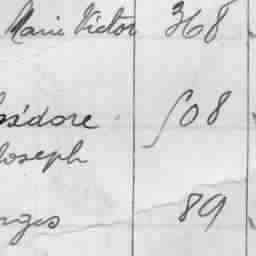 Marie Victor 368
Isidore 508
Joseph
rges 89